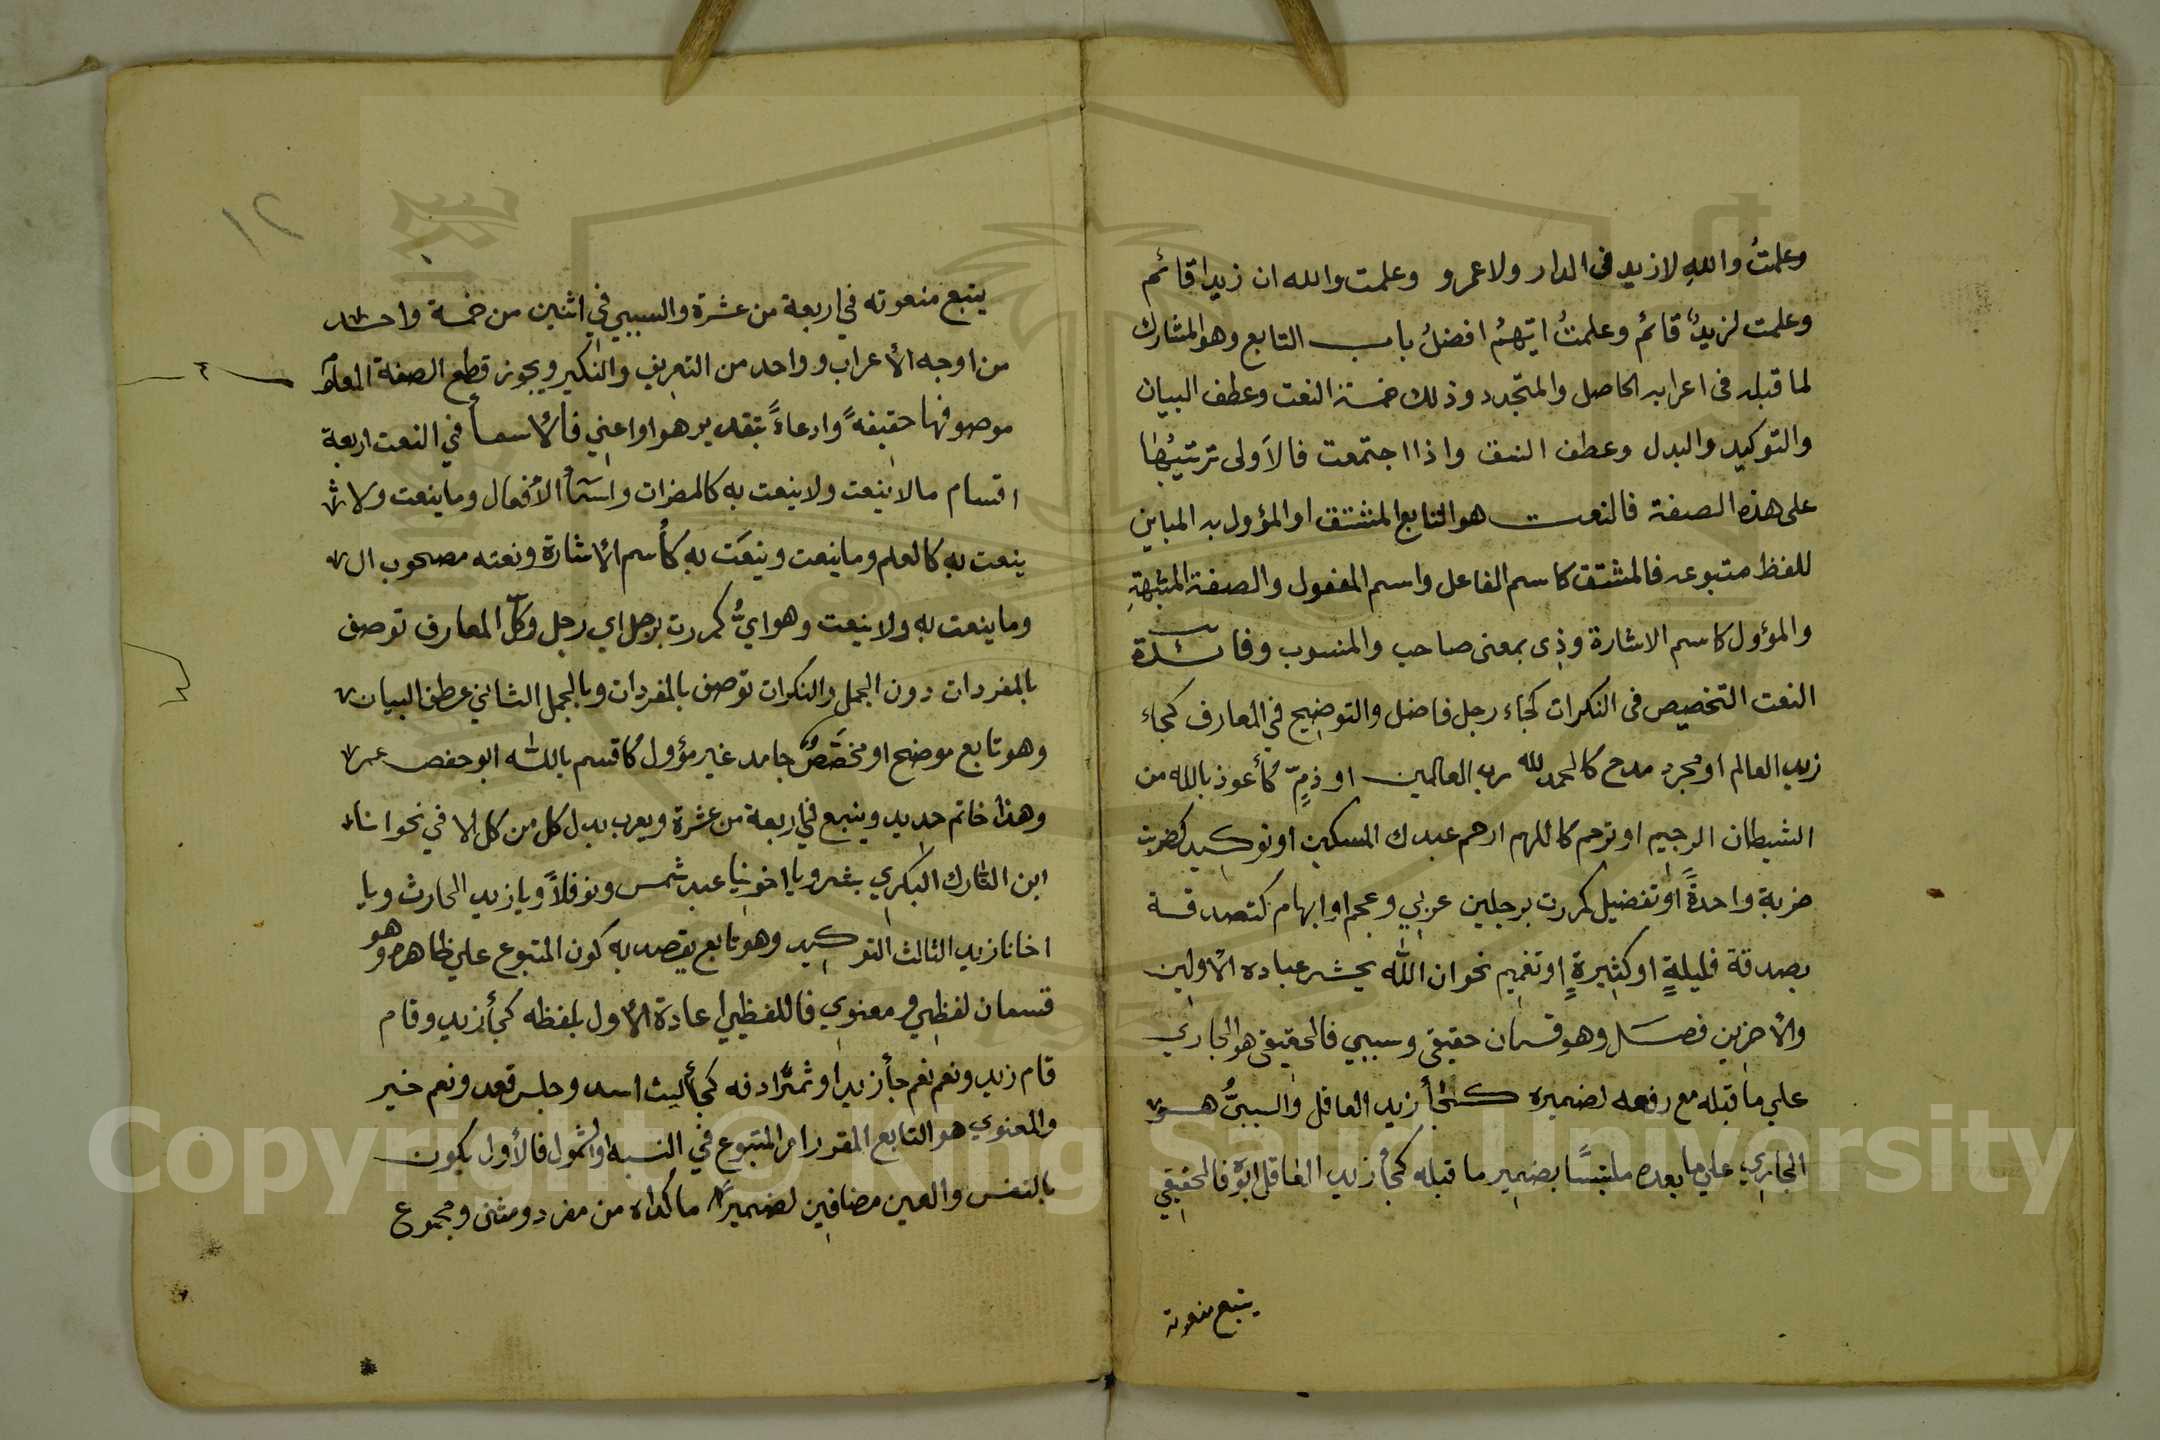 وعلمتُ واللهِ لا زيد فى الدار ولا عمرو وعلمت والله ان زيدا قائم
وعلمت لزيدٌ قائم وعلمتُ ايّهم افضلُ باب التابع وهو المشارك
لما قبله فى اعرابه الحاصل والمتجدد وذلك خمسة النعت وعطف البيان
والتوكيد والبدل وعطف النسق واذا اجتمعت فالاَولى ترتيبُها
على هذه الصفة فالنعت هو التابع المشتق او المؤول به المباين
للفظ متبوعه فالمشتق كاسم الفاعل واسم المفعول والصفة المشبّهةِ
والمؤول كاسم الاشارة وذِى بمعنى صاحب والمنسوب وفائدة
النعت التخصيص فى النكرات كجاء رجل فاضل والتوضيح في المعارف كجاء
زيد العالم او مجرد مدح كالحمد لله رب العالمين او ذمٍّ كأعوذ بالله من
الشيطان الرجيم او ترحم كاللهم ارحم عبدك المسكين او توكيد كضربت
ضربة واحدةً او تفضيل كمررت برجلين عربي وعجم او ابهام كتصدقـة
بصدقة قليلةٍ او كثيرةٍ او تغميم نحو ان الله يحشر عباده الأولين
والأخرين فصل وهو قسمان حقيقى وسببي فالحقيقى هو الجاري
علي ما قبله مع رفعه لضميره كجأ زيد العاقل والسببيُّ هو
الجاري علي ما بعده ملتبسًا بضمير ما قبله كجأ زيد العاقل ابوه فالحقيقي
يتبع منعوته
١٢
يتبع منعوته في اربعة من عشرة والسببي في اثنين من خمسة واحد
من اوجه الأعراب وواحد من التعريف والنكير ويجوز قطع الصفة المعلم
موصوفها حقيقةً وادعاءً بتقدير هو او اعني فالأسمأ في النعت اربعة
اقسام ما لا ينعت ولا ينعت به كالمضمرات واسمأ الأفعال وما ينعت ولا
ينعت به كالعلم وما ينعت وينعَت به كأسم الأشارة ونعته مصحوب ال
وما ينعت به ولا ينعت وهو ايُّ كمررت برجل اي رجل وكل المعارف توصف
بالمفردات دون الجمل والنكرات توصف بالمفردات وبالجمل الثاني عطف البيان
وهو تابع موضح او مخصّصٌ جامد غير مؤول كاقسم بالله ابو حفص عمر
وهذا خاتم حديد ويتبع في اربعة من عشرة ويعرب بدل كل من كل الا في نحو انا
ابن التارك البكري بشر ويا اخونيا عبد شمس ونوفلاً ويا زيد الحارث ويا
اخانا زيد الثالث التوكيد وهو تابع يقصد به كون المتبوع علي ظاهره وهو
قسمان لفظي ومعنوي فاللفظي اعادة الأول بلفظه كجأ زيد وقام
قام زيد ونعم نعم جأ زيد او ثمرّادفه كجأ ليث اسد وجلس قعد ونعم خير
والمعنوي هو التابع المقرر امر المتبوع في النسبه او الشمول فالأول يكون
بالنفس والعين مضافين لضمير ما اكداه من مفرد ومثنى ومجموع
Copyright © King Saud University